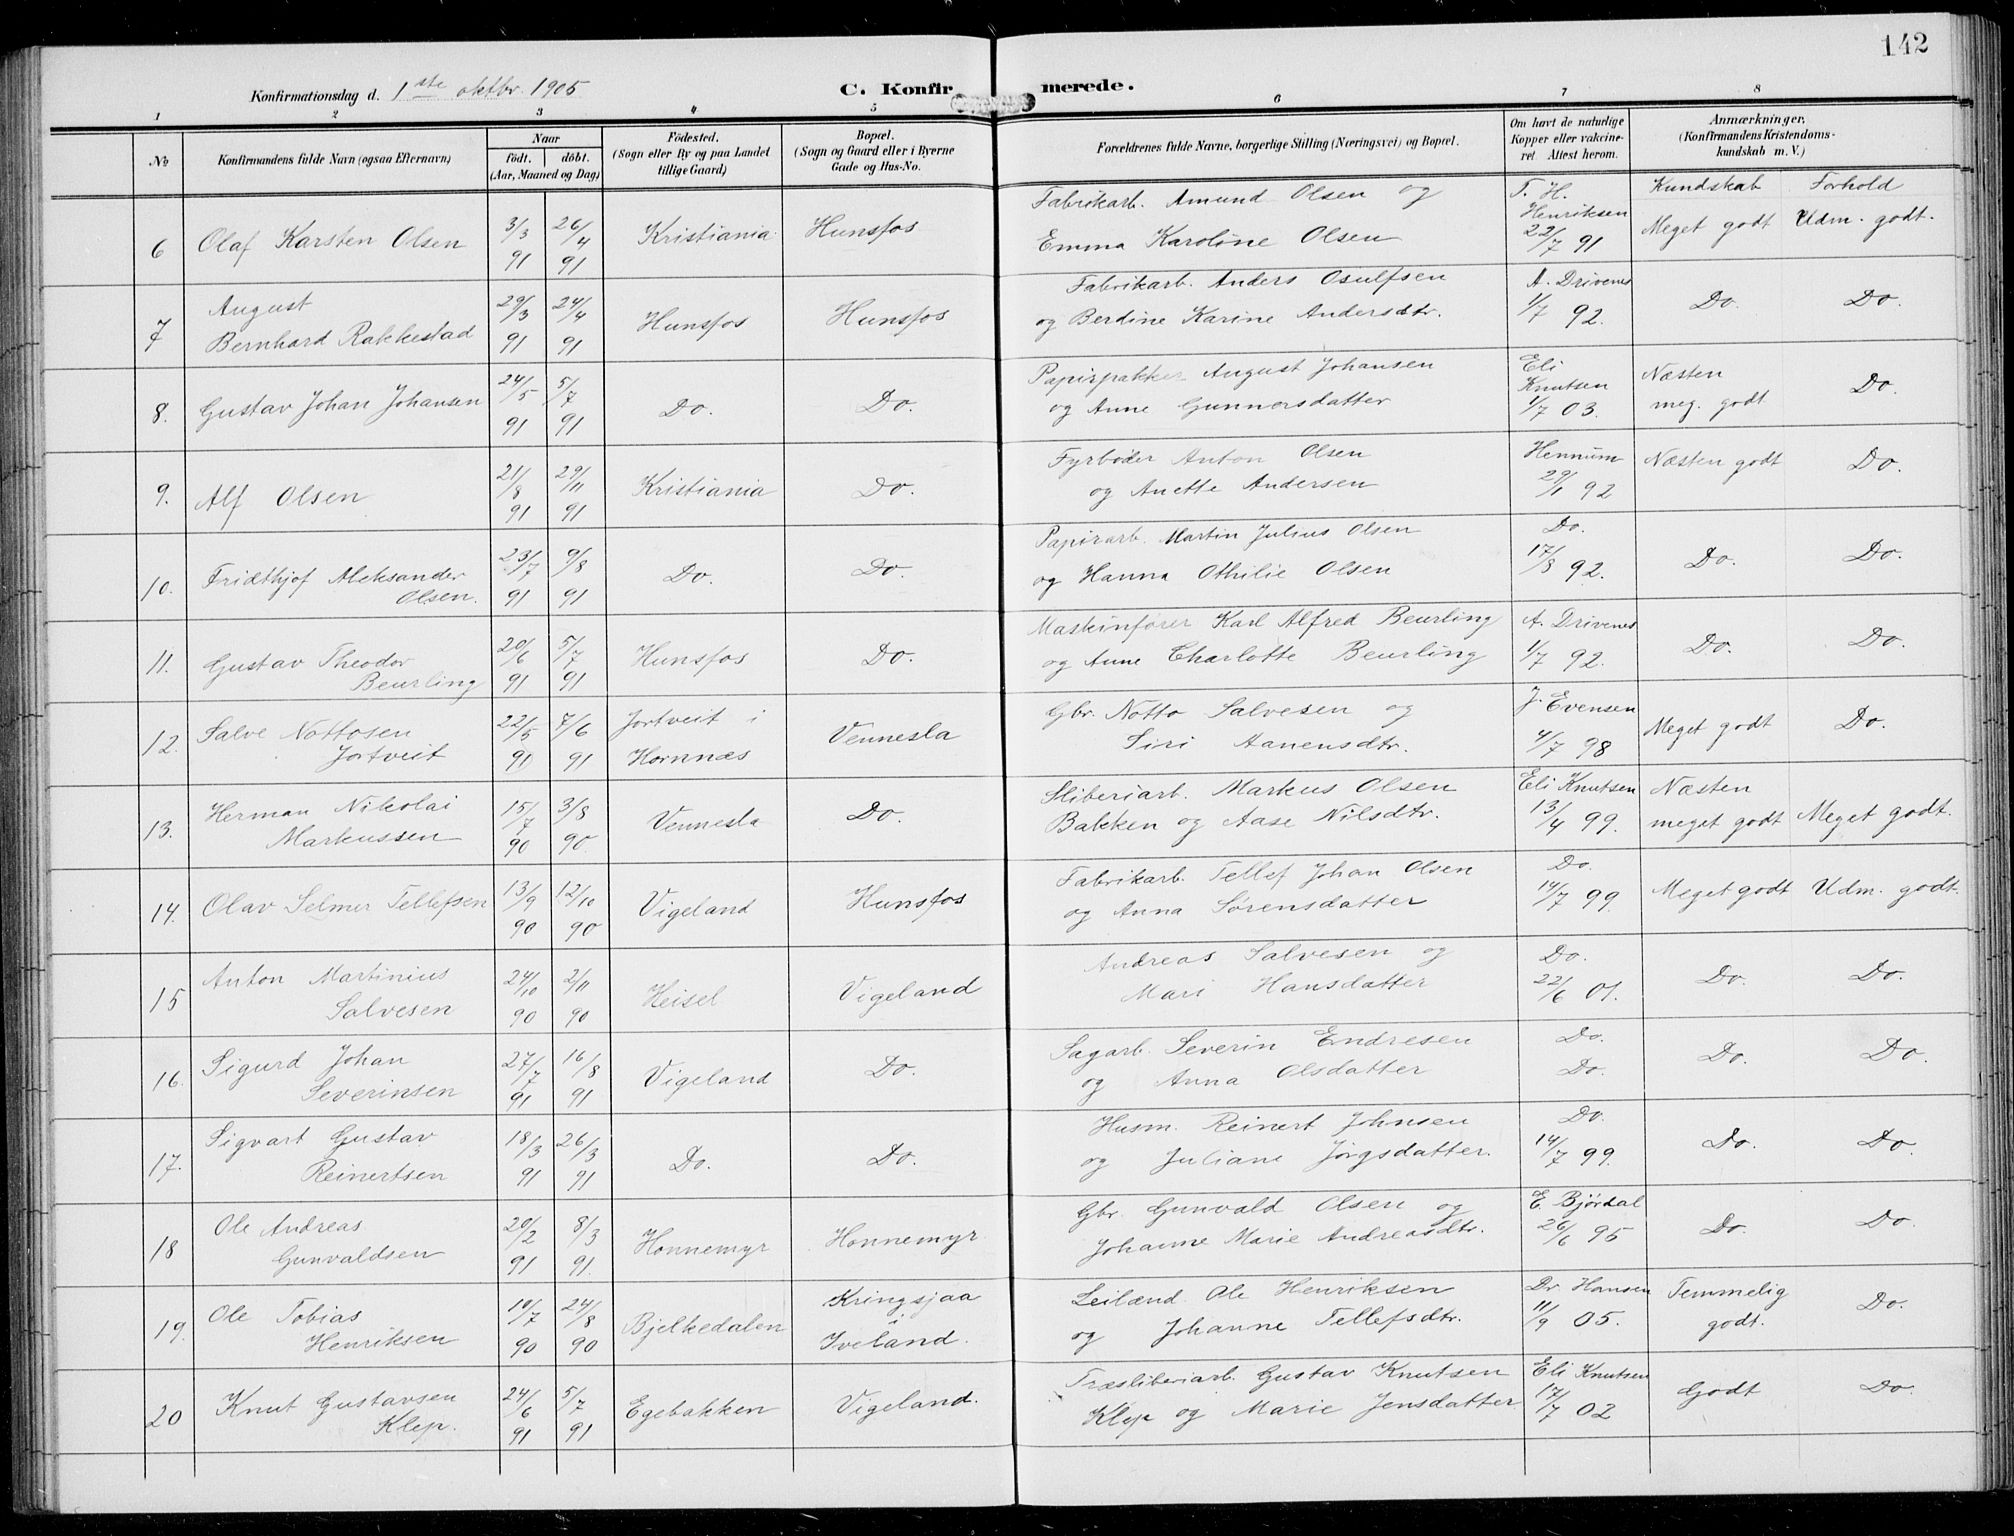 142
Konfirmationsdag d. 1ste oktbr. 1905 C. Konfirmerede.
1 2 3 4 5 6 7 8
No Konfirmandens fulde Navn (ogsaa Efternavn) Naar født. døbt. (Aar, Maaned og Dag) Fødested. (Sogn eller By og paa Landet tillige Gaard) Bopæl. (Sogn og Gaard eller i Byerne Gade og Hus-No. Forældrenes fulde Navne, borgerlige Stilling (Næringsvei) og Bopæl. Om havt de naturlige Kopper eller vakcineret. Attest herom. Anmærkninger. (Konfirmandens Kristendomskundskab m. V.)
Kundskab Forhold
6 Olaf Karsten Olsen 3/3 91 26/4 91 Kristiania Hunsfos Fabrikarb. Amund Olsen og Emma Karoline Olsen T. H. Henriksen 22/7 91 Meget godt Udm. godt.
7 August Bernhard Rakkestad 29/3 91 24/4 91 Hunsfos Hunsfos Fabrikarb. Anders Osulfsen og Berdine Karine Andersdtr. A. Drivenes 1/7 92. Do. Do.
8. Gustav Johan Johansen 24/5 91 5/7 91 Do. Do. Papirpakker August Johansen og Anne Gunnersdatter Eli Knutsen 1/7 03. Næsten meg. godt Do.
9. Alf Olsen 21/8 91 29/11 91 Kristiania Do. Fyrbøder Anton Olsen og Anette Andersen Hennum 29/1 92 Næsten godt Do.
10. Fridthjof Aleksander Olsen. 23/7 91 9/8 91 Do. Do. Papirarb. Martin Julius Olsen og Hanna Othilie Olsen Do. 17/8 92. Do. Do.
11. Gustav Theodor Beurling 20/6 91 5/7 91 Hunsfos Do. Maskinfører Karl Alfred Beurling og Anne Charlotte Beurling A. Drivenes 1/7 92. Do. Do.
12. Salve Nottosen Jortveit 22/5 90 7/6 91 Jortveit i Hornnæs Vennesla Gbr. Notto Salvesen og Siri Aanensdtr. J. Evensen 4/7 98 Meget godt Do.
13. Herman Nikolai Markussen 15/7 90 3/8 90. Vennesla Do. Sliberiarb. Markus Olsen Bakken og Aase Nilsdtr. Eli Knutsen 13/4 99. Næsten meget godt Meget godt.
14. Olav Selmer Tellefsen 13/9 90 12/10 90 Vigeland Hunsfos Fabrikarb. Tellef Johan Olsen og Anna Sørensdatter Do. 14/7 99. Meget godt Udm. godt.
15 Anton Martinius Salvesen 24/10 90 2/11 90 Heisel Vigeland Andreas Salvesen og Mari Hansdatter Do. 22/6 01. Do. Do.
16. Sigurd Johan Severinsen 27/7 91 16/8 91 Vigeland Do. Sagarb. Severin Endresen og Anna Olsdatter Do. Do. Do. Do.
17. Sigvart Gustav Reinertsen 18/3 91 26/3 91 Do. Do. Husm. Reinert Johnsen og Juliane Jørgsdatter. Do. 14/7 99. Do. Do.
18 Ole Andreas Gunvaldsen 20/2 91 8/3 91. Honnemyr Honnemyr. Gbr. Gunvald Olsen og Johanne Marie Andreasdtr. E. Bjørdal 26/6 95 Do. Do.
19. Ole Tobias Henriksen 10/7 90 24/8 90 Bjelkedalen Kringsjaa i Iveland. Leilænd. Ole Henriksen og Johanne Tellefsdtr. Dr Hansen 11/9 05. Temmelig godt. Do.
20 Knut Gustavsen Klep. 24/6 91 5/7 91 Egebakken Vigeland. Træsliberiarb. Gustav Knutsen Klep og Marie Jensdatter Eli Knutsen 17/7 02 Godt Do.